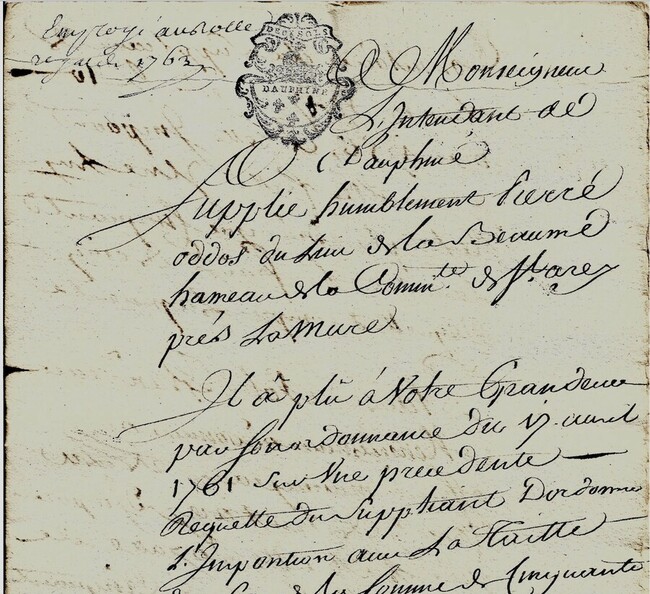 Employé au Rolle
1763
DEC. SOLS
DAUPHINÉ
A Monseigneur
L'Intendant dé
Dauphiné
Supplie humblement Pierré
oddos du Lieu de la Beaumé
hameau de la Comm.te de St. arey
prés La Mure
Il a plû à Votre Grandeur
par son ordonnance du 17. avril
1761 sur Une precedente
Requette du Suppliant Dordonner
L'Imposition aux La Taille
de la Somme de Cinquante